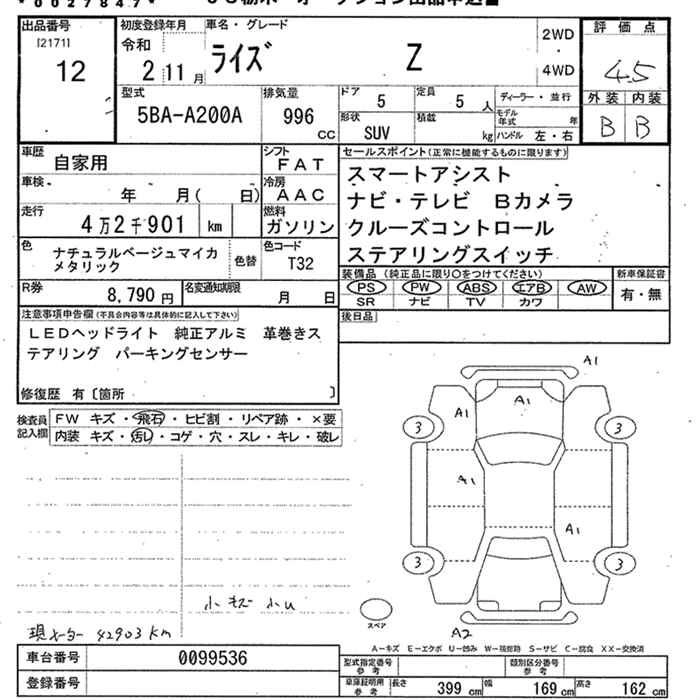 *0027847*
出品番号
[2171]
12
初度登録年月
令和
2 11 月
車名・グレード
ライズ Z
2WD
・
4WD
評価点
4.5
外装 内装
B B
型式
5BA-A200A
排気量
996
cc
ドア
5
定員
5 人
形状
SUV
積載
kg
ディーラー・並行
モデル年式 年
ハンドル 左・右
車歴
自家用
シフト
FAT
車検
年 月( 日)
冷房
AAC
走行
4万2千901 km
燃料
ガソリン
色
ナチュラルベージュマイカ
メタリック
色替
色コード
T32
R券
8,790 円
名変通知期限
月 日
セールスポイント(正常に機能するものに限ります)
スマートアシスト
ナビ・テレビ Bカメラ
クルーズコントロール
ステアリングスイッチ
装備品 (純正品に限り○をつけてください)
PS PW ABS エアB AW
SR ナビ TV カワ
新車保証書
有・無
後日品
注意事項申告欄(不具合内容等は具体的に記入して下さい)
LEDヘッドライト 純正アルミ 革巻きス
テアリング パーキングセンサー
修復歴 有〔箇所 〕
検査員
記入欄
FW キズ・飛石・ヒビ割・リペア跡・×要
内装 キズ・汚レ・コゲ・穴・スレ・キレ・破レ
A1
A1
A1
3
3
A1
A1
3
3
A2
スペア
小キズ 小U
現メーター 42903km
A−キズ E−エクボ U−凹み W−補修跡 S−サビ C−腐食 XX−交換済
車台番号
0099536
登録番号
型式指定番号
参考
類別区分番号
参考
車庫証明用
参考
長さ 399 cm 幅 169 cm 高さ 162 cm